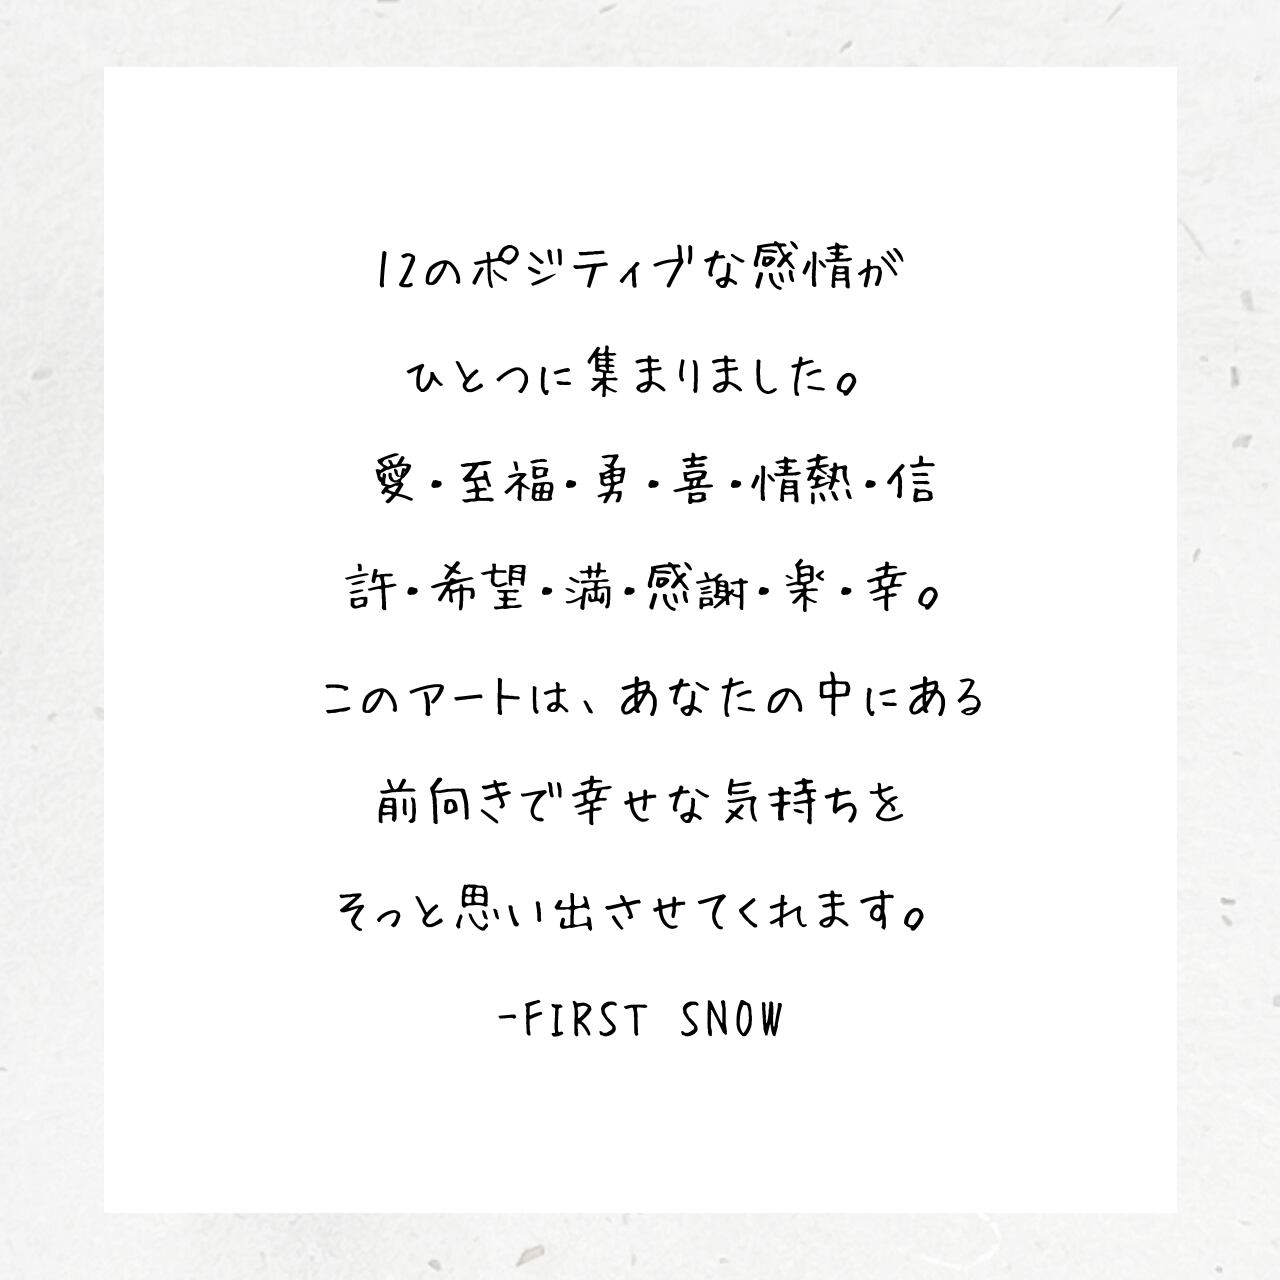 12のポジティブな感情が
ひとつに集まりました。
愛・至福・勇・喜・情熱・信
許・希望・満・感謝・楽・幸。
このアートは、あなたの中にある
前向きで幸せな気持ちを
そっと思い出させてくれます。
-FIRST SNOW